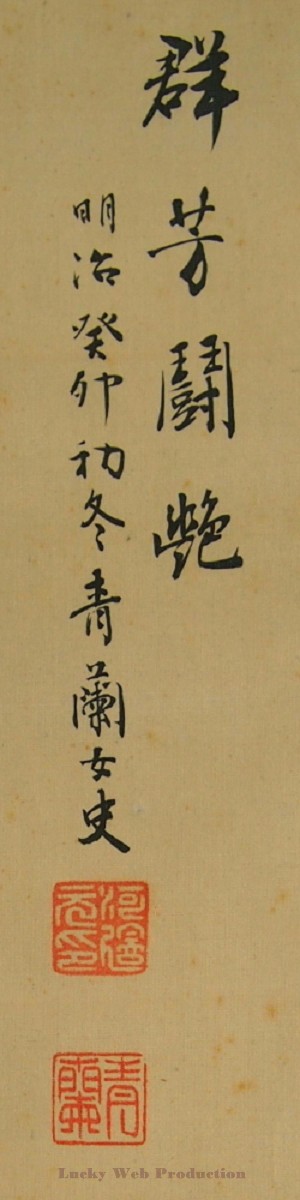 群芳鬪艶
明治癸卯初冬青蘭女史
青蘭
Lucky Web Production